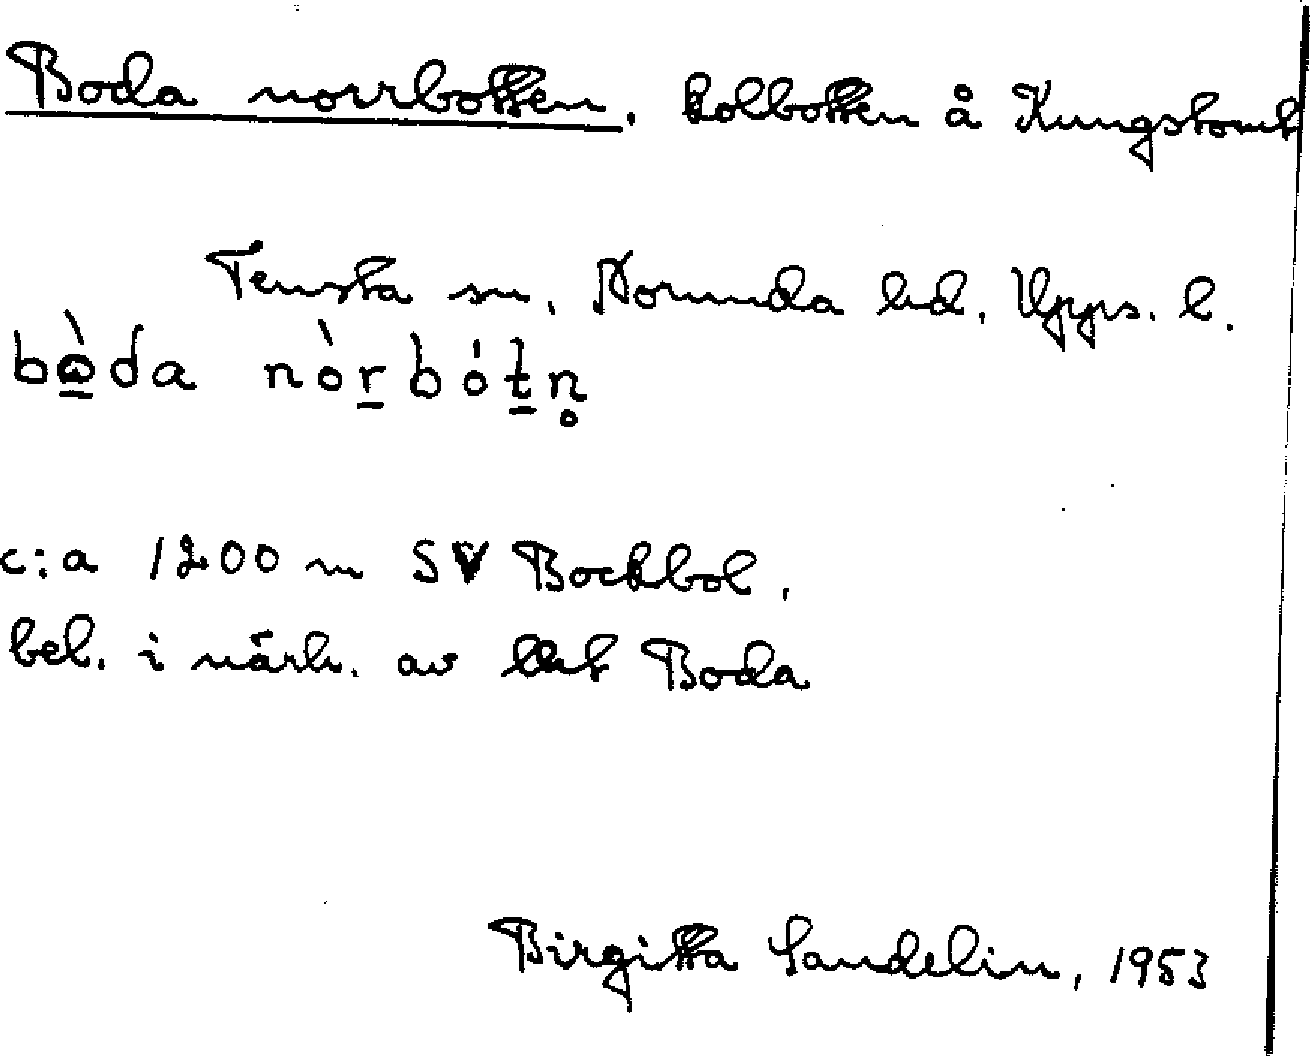 Boda norrbotten. Kolbotten å Kungstomt
Tensta sn. Norunda hd. Upps. l.
bò̱da nòṟbót̠n̥
c:a 1200 m SV Bockbol.
bel. i närh. av lht Boda
Birgitta Sandelin, 1953